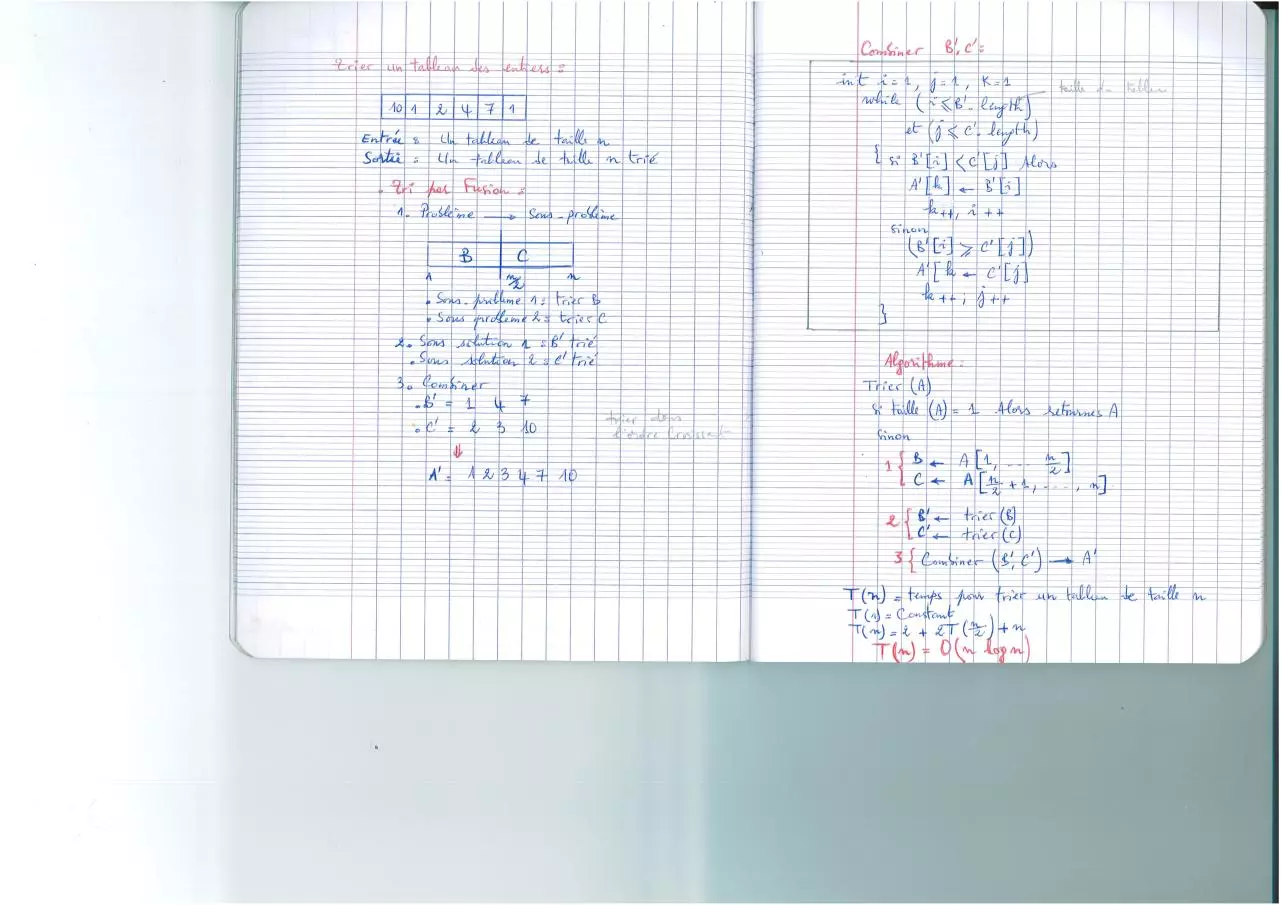 Trier un tableau des entiers :
10 1 2 4 7 1
Entrée : Un tableau de taille n
Sortie : Un tableau de taille n trié
. Tri par Fusion :
1. Problème → Sous-problème
B C
1 n/2 n
. Sous-problème 1 = trier B
. Sous problème 2 = trier C
2. Sous solution 1 = B' trié
. Sous solution 2 = C' trié
3. Combiner
. B' = 1 4 7
. C' = 2 3 10
trier dans
l'ordre Croissant
↓
A' = 1 2 3 4 7 10
Combiner B', C' :
int i = 1, j = 1, K = 1
while (i ⩽ B'. length)
taille du tableau
et (j ⩽ C'. length)
{ si B'[i] < C'[j] Alors
A'[k] ← B'[i]
k++, i++
sinon
(B'[i] ⩾ C'[j])
A'[k ← C'[j]
k++; j++
}
Algorithme :
Trier (A)
si taille (A) = 1 Alors retournes A
sinon
1 { B ← A[1, .... n/2]
C ← A[n/2 + 1, ...., n]
2 { B' ← trier (B)
C' ← trier (C)
3 { Combiner (B', C') → A'
T(n) = temps pour trier un tableau de taille n
T(1) = Constant
T(n) = 2 + 2T(n/2) + n
T(n) = O(n log n)